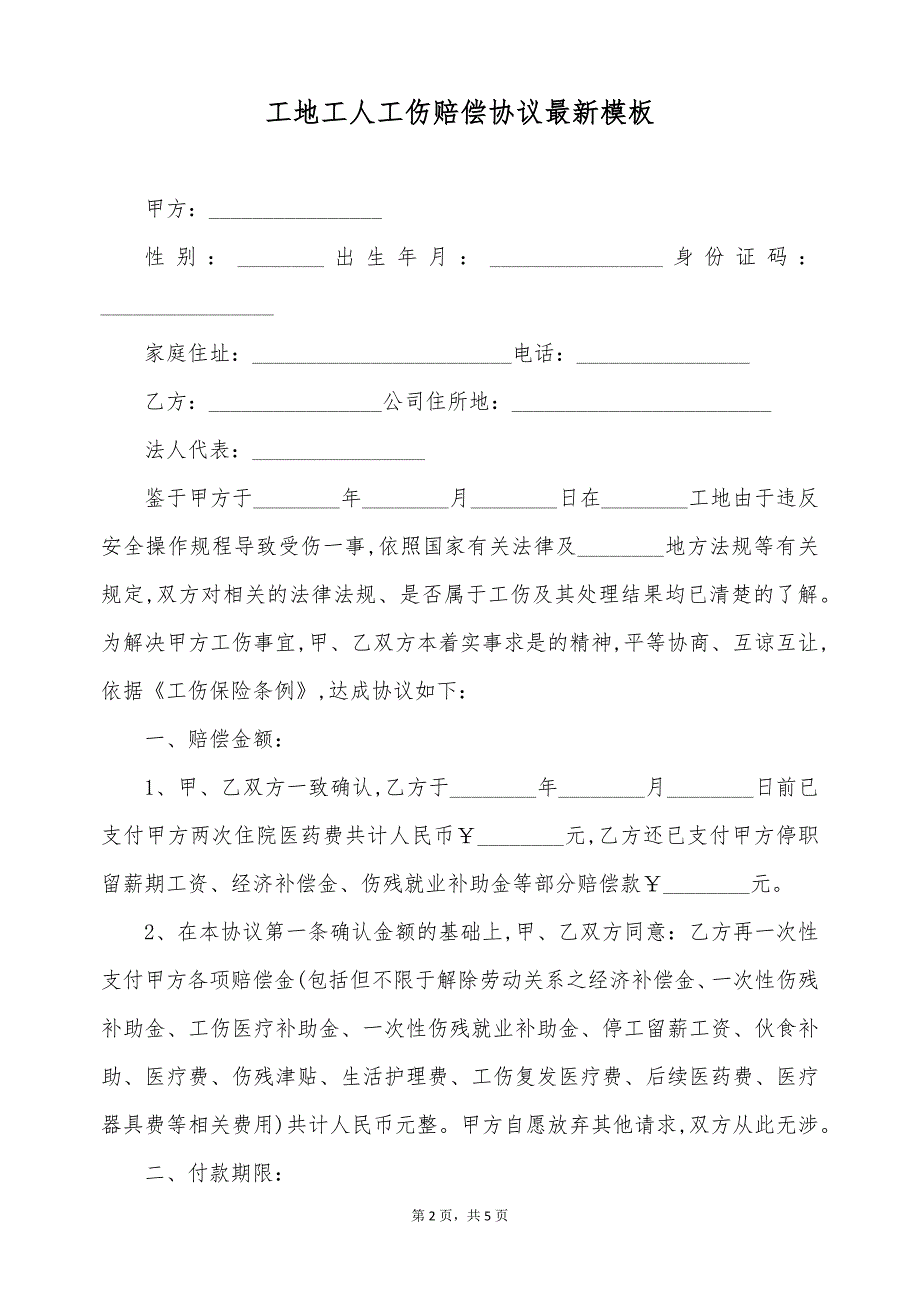 工地工人工伤赔偿协议最新模板
甲方：________________
性别：________出生年月：________________身份证码：
________________
家庭住址：________________________电话：________________
乙方：________________公司住所地：________________________
法人代表：________________
鉴于甲方于________年________月________日在________工地由于违反
安全操作规程导致受伤一事,依照国家有关法律及________地方法规等有关
规定,双方对相关的法律法规、是否属于工伤及其处理结果均已清楚的了解。
为解决甲方工伤事宜,甲、乙双方本着实事求是的精神,平等协商、互谅互让,
依据《工伤保险条例》,达成协议如下：
一、赔偿金额：
1、甲、乙双方一致确认,乙方于________年________月________日前已
支付甲方两次住院医药费共计人民币￥________元,乙方还已支付甲方停职
留薪期工资、经济补偿金、伤残就业补助金等部分赔偿款￥________元。
2、在本协议第一条确认金额的基础上,甲、乙双方同意：乙方再一次性
支付甲方各项赔偿金(包括但不限于解除劳动关系之经济补偿金、一次性伤残
补助金、工伤医疗补助金、一次性伤残就业补助金、停工留薪工资、伙食补
助、医疗费、伤残津贴、生活护理费、工伤复发医疗费、后续医药费、医疗
器具费等相关费用)共计人民币元整。甲方自愿放弃其他请求,双方从此无涉。
二、付款期限：
第 2 页，共 5 页